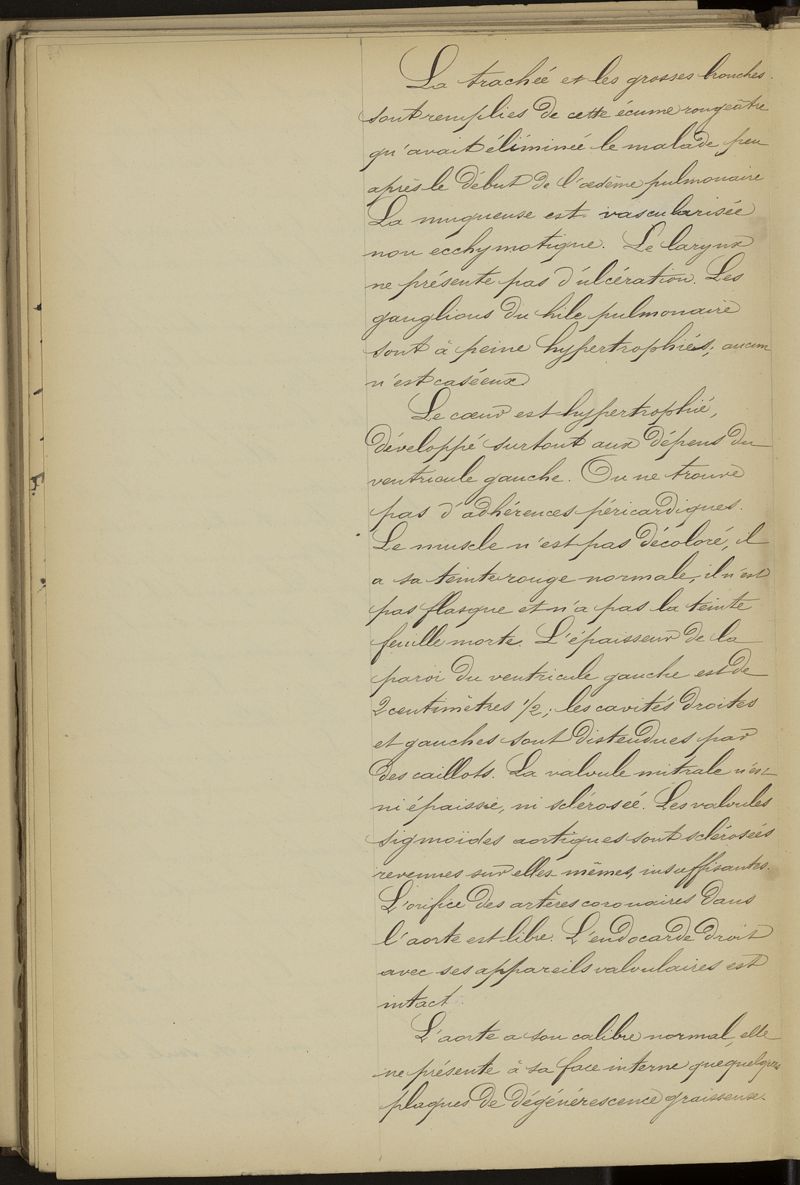 La trachée et les grosses bronches
sont remplies de cette écume rougeâtre
qu'avait éliminée le malade peu
après le début de l'œdème pulmonaire
La muqueuse est vascularisée
non ecchymotique. Le larynx
ne présente pas d'ulcération. Les
ganglions du hile pulmonaire
sont à peine hypertrophiés; aucun
n'est caséeux
Le cœur est hypertrophié,
développé surtout aux dépens du
ventricule gauche. On ne trouve
pas d'adhérences péricardiques.
Le muscle n'est pas décoloré, il
a sa teinte rouge normale, il n'est
pas flasque et n'a pas la teinte
feuille morte. L'épaisseur de la
paroi du ventricule gauche est de
2 centimètres 1/2; les cavités droites
et gauches sont distendues par
des caillots. La valvule mitrale n'est
ni épaissie, ni sclérosée. Les valvules
sigmoïdes aortiques sont sclérosées
revenues sur elles-mêmes, insuffisantes.
L'orifice des artères coronaires dans
l'aorte est libre. L'endocarde droit
avec ses appareils valvulaires est
intact
L'aorte a son calibre normal, elle
ne présente à sa face interne que quelques
plaques de dégénérescence graisseuse.